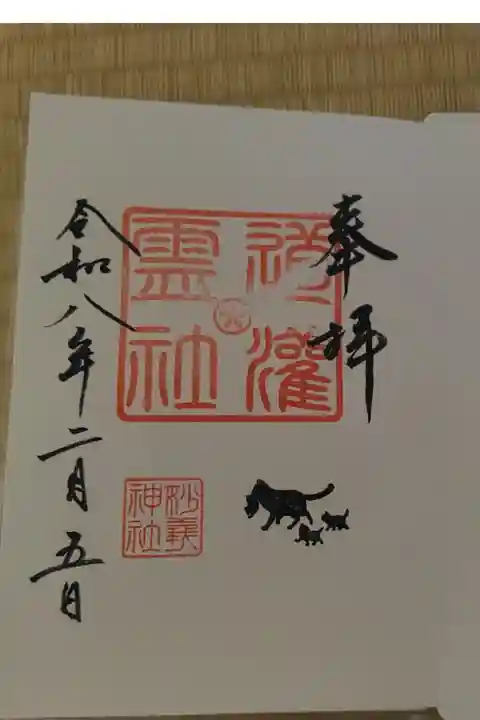 奉拝
道灌
霊社
妙義
神社
令和八年二月五日